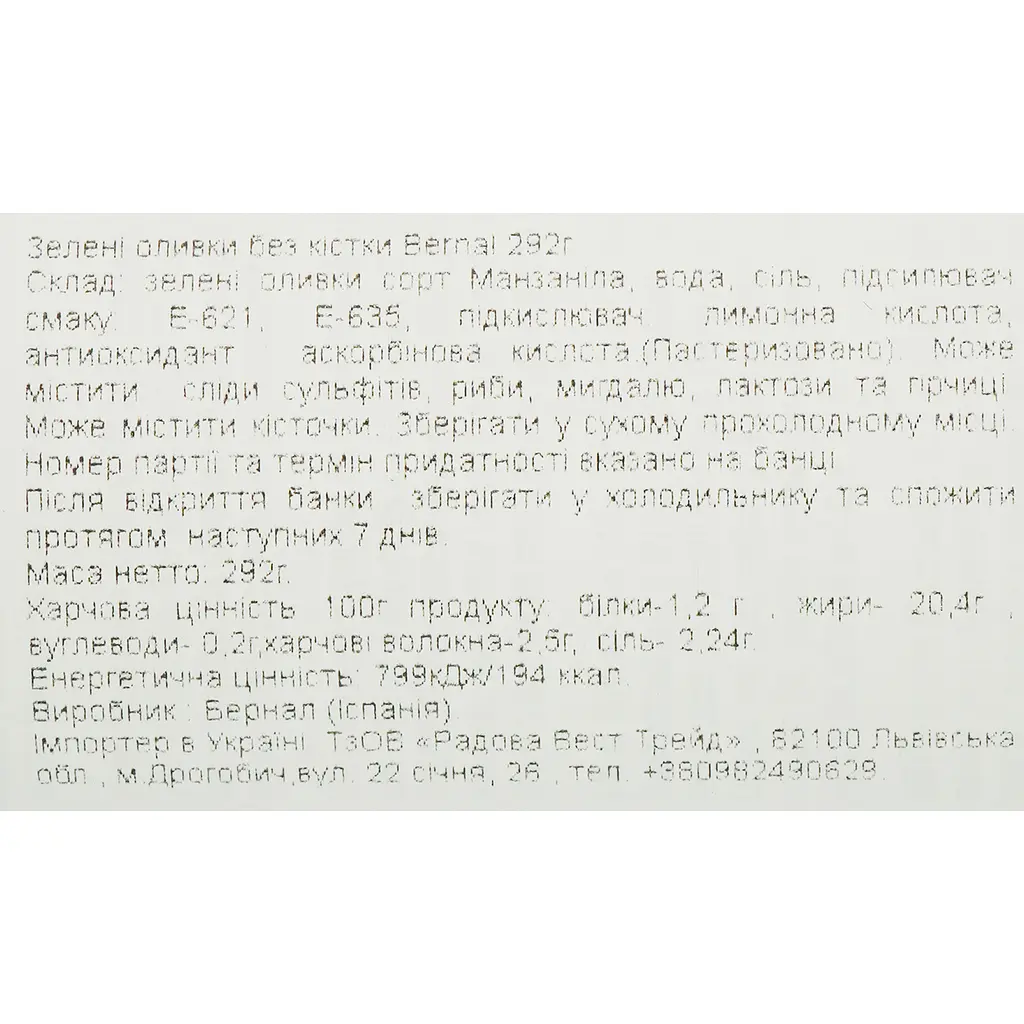 Зелені оливки без кістки Bernal 292г
Склад: зелені оливки сорт Манзаніла, вода, сіль, підсилювач
смаку: Е-621, Е-635, підкислювач: лимонна кислота,
антиоксидант : аскорбінова кислота.(Пастеризовано). Може
містити сліди сульфітів, риби, мигдалю, лактози та гірчиці.
Може містити кісточки. Зберігати у сухому прохолодному місці.
Номер партії та термін придатності вказано на банці.
Після відкриття банки зберігати у холодильнику та спожити
протягом наступних 7 днів.
Маса нетто: 292г.
Харчова цінність 100г продукту: білки-1,2 г , жири- 20,4г ,
вуглеводи- 0,2г,харчові волокна-2,6г, сіль- 2,24г.
Енергетична цінність: 799кДж/194 ккал.
Виробник : Бернал (Іспанія).
Імпортер в Україні: ТзОВ «Радова Вест Трейд» , 82100 Львівська
обл., м.Дрогобич,вул. 22 січня, 26 , тел. +380982490629.